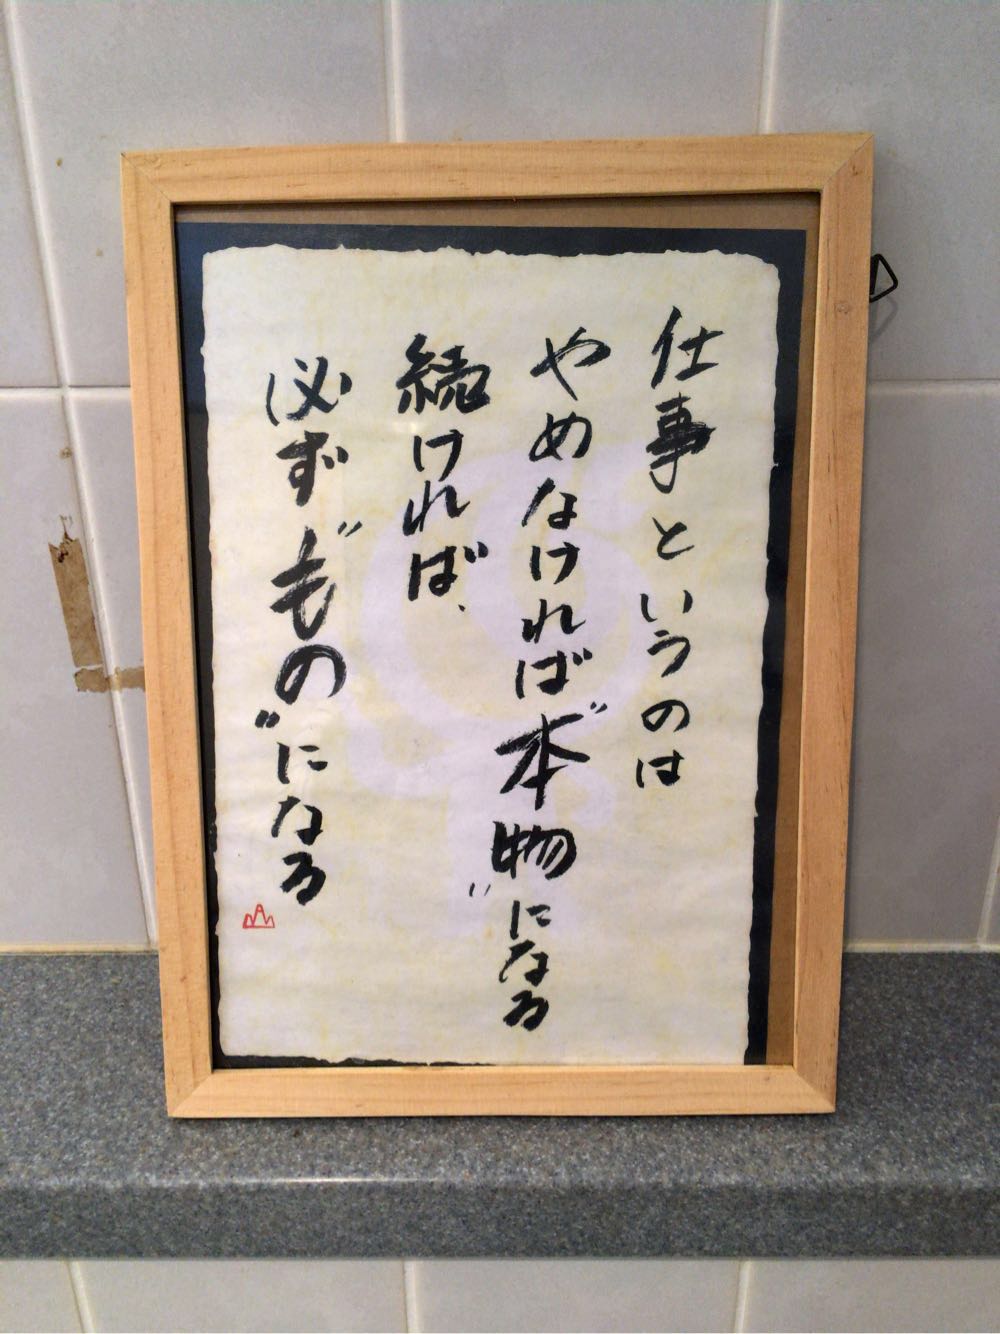 仕事というのは
やめなければ〝本物〟になる
続ければ、
必ず〝もの〟になる